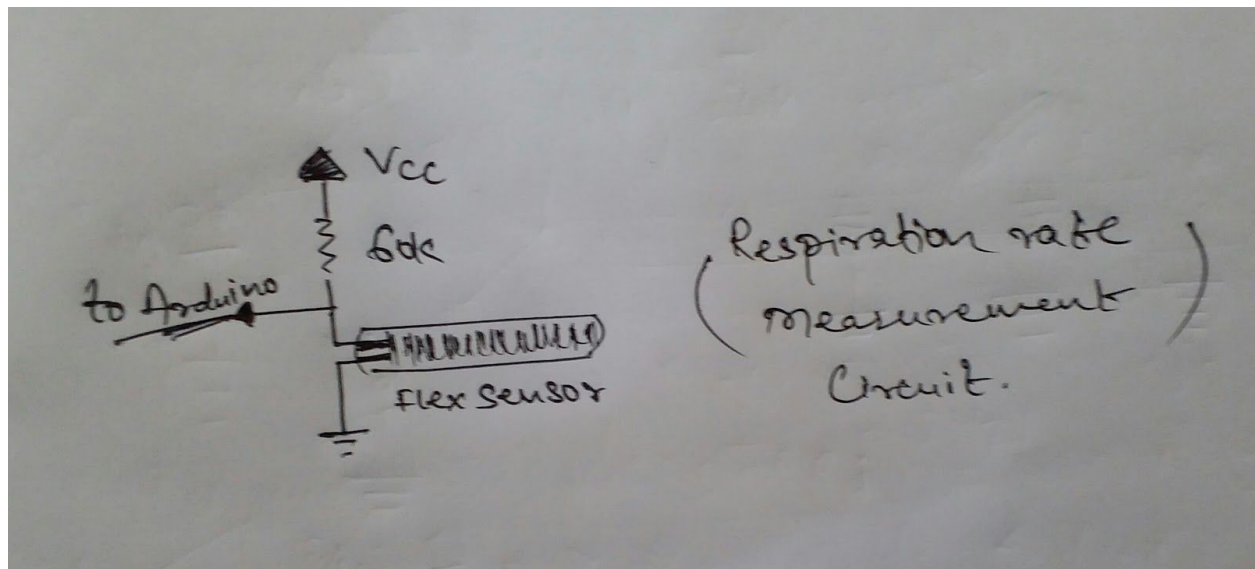 Vcc
60k
to Arduino
Flex Sensor
(Respiration rate
measurement)
Circuit.